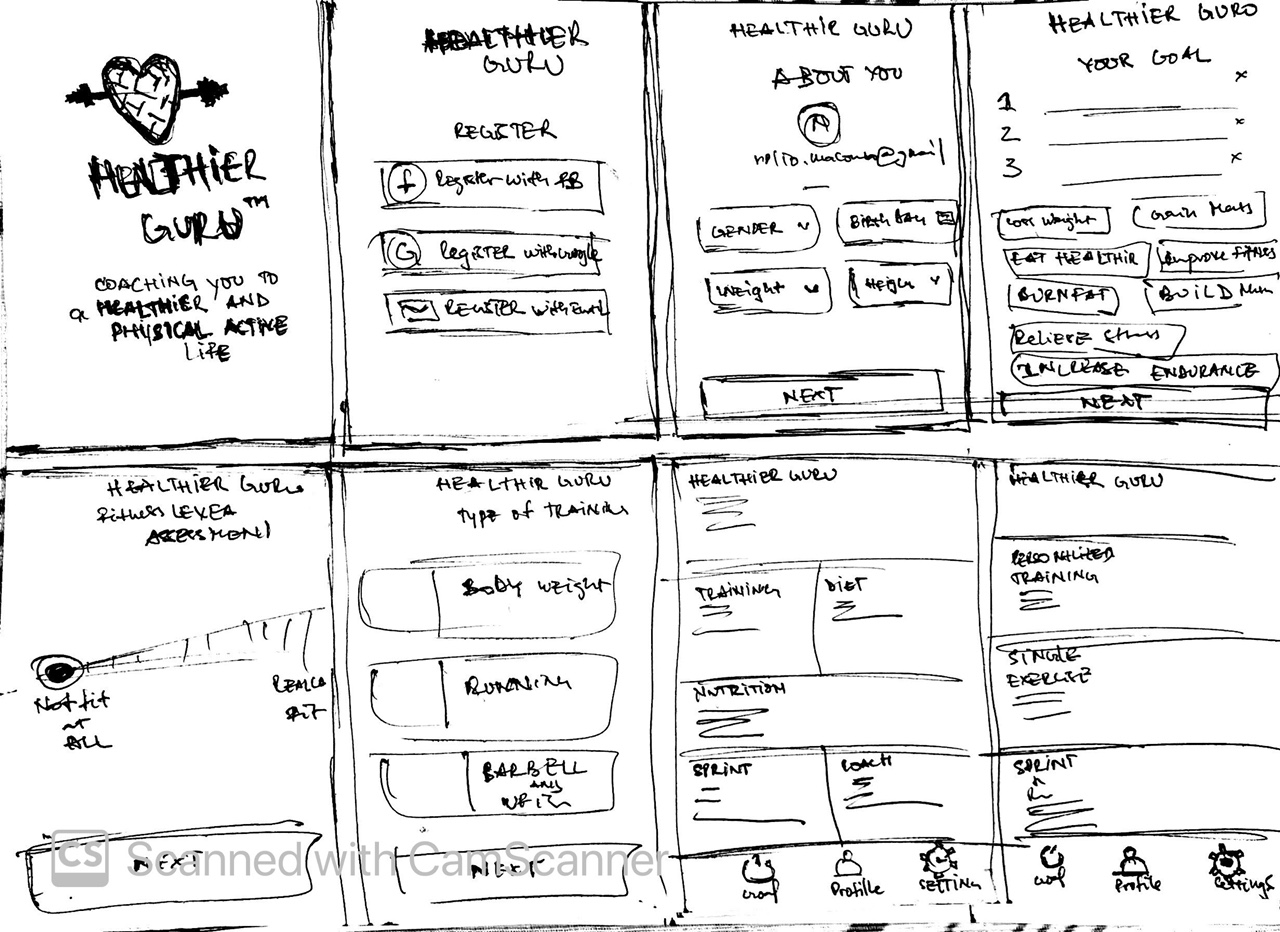 HEALTHIER
GURU™
COACHING YOU TO
a HEALTHIER AND
PHYSICAL ACTIVE
LIFE
HEALTHIER
GURU
REGISTER
f Register with FB
G REGISTER with Google
REGISTER with Email
HEALTHIR GURU
ABOUT YOU
N
GENDER
Birth Day
Weight
Heigh
NEXT
HEALTHIER GURO
YOUR GOAL
1 x
2 x
3 x
Loss Weight
Gain Mass
EAT HEALTHIR
Improve Fitness
BURN FAT
BUILD
Relieve Stress
INCREASE ENDURANCE
NEXT
HEALTHIER GURU
Fitness LEVEA
ASSESSMENT
Not fit
at
ALL
NEXT
HEALTHIR GURU
Type of TRAINING
BODY Weight
RUNNING
BARBELL
AND
NEXT
HEALTHIER GURU
TRAINING
DIET
NUTRITION
SPRINT
COACH
Goal
Profille
SETTING
HEALTHIER GURU
PERSONALIZED
TRAINING
SINGLE
EXERCISE
SPRINT
Goal
Profile
Settings
CS Scanned with CamScanner